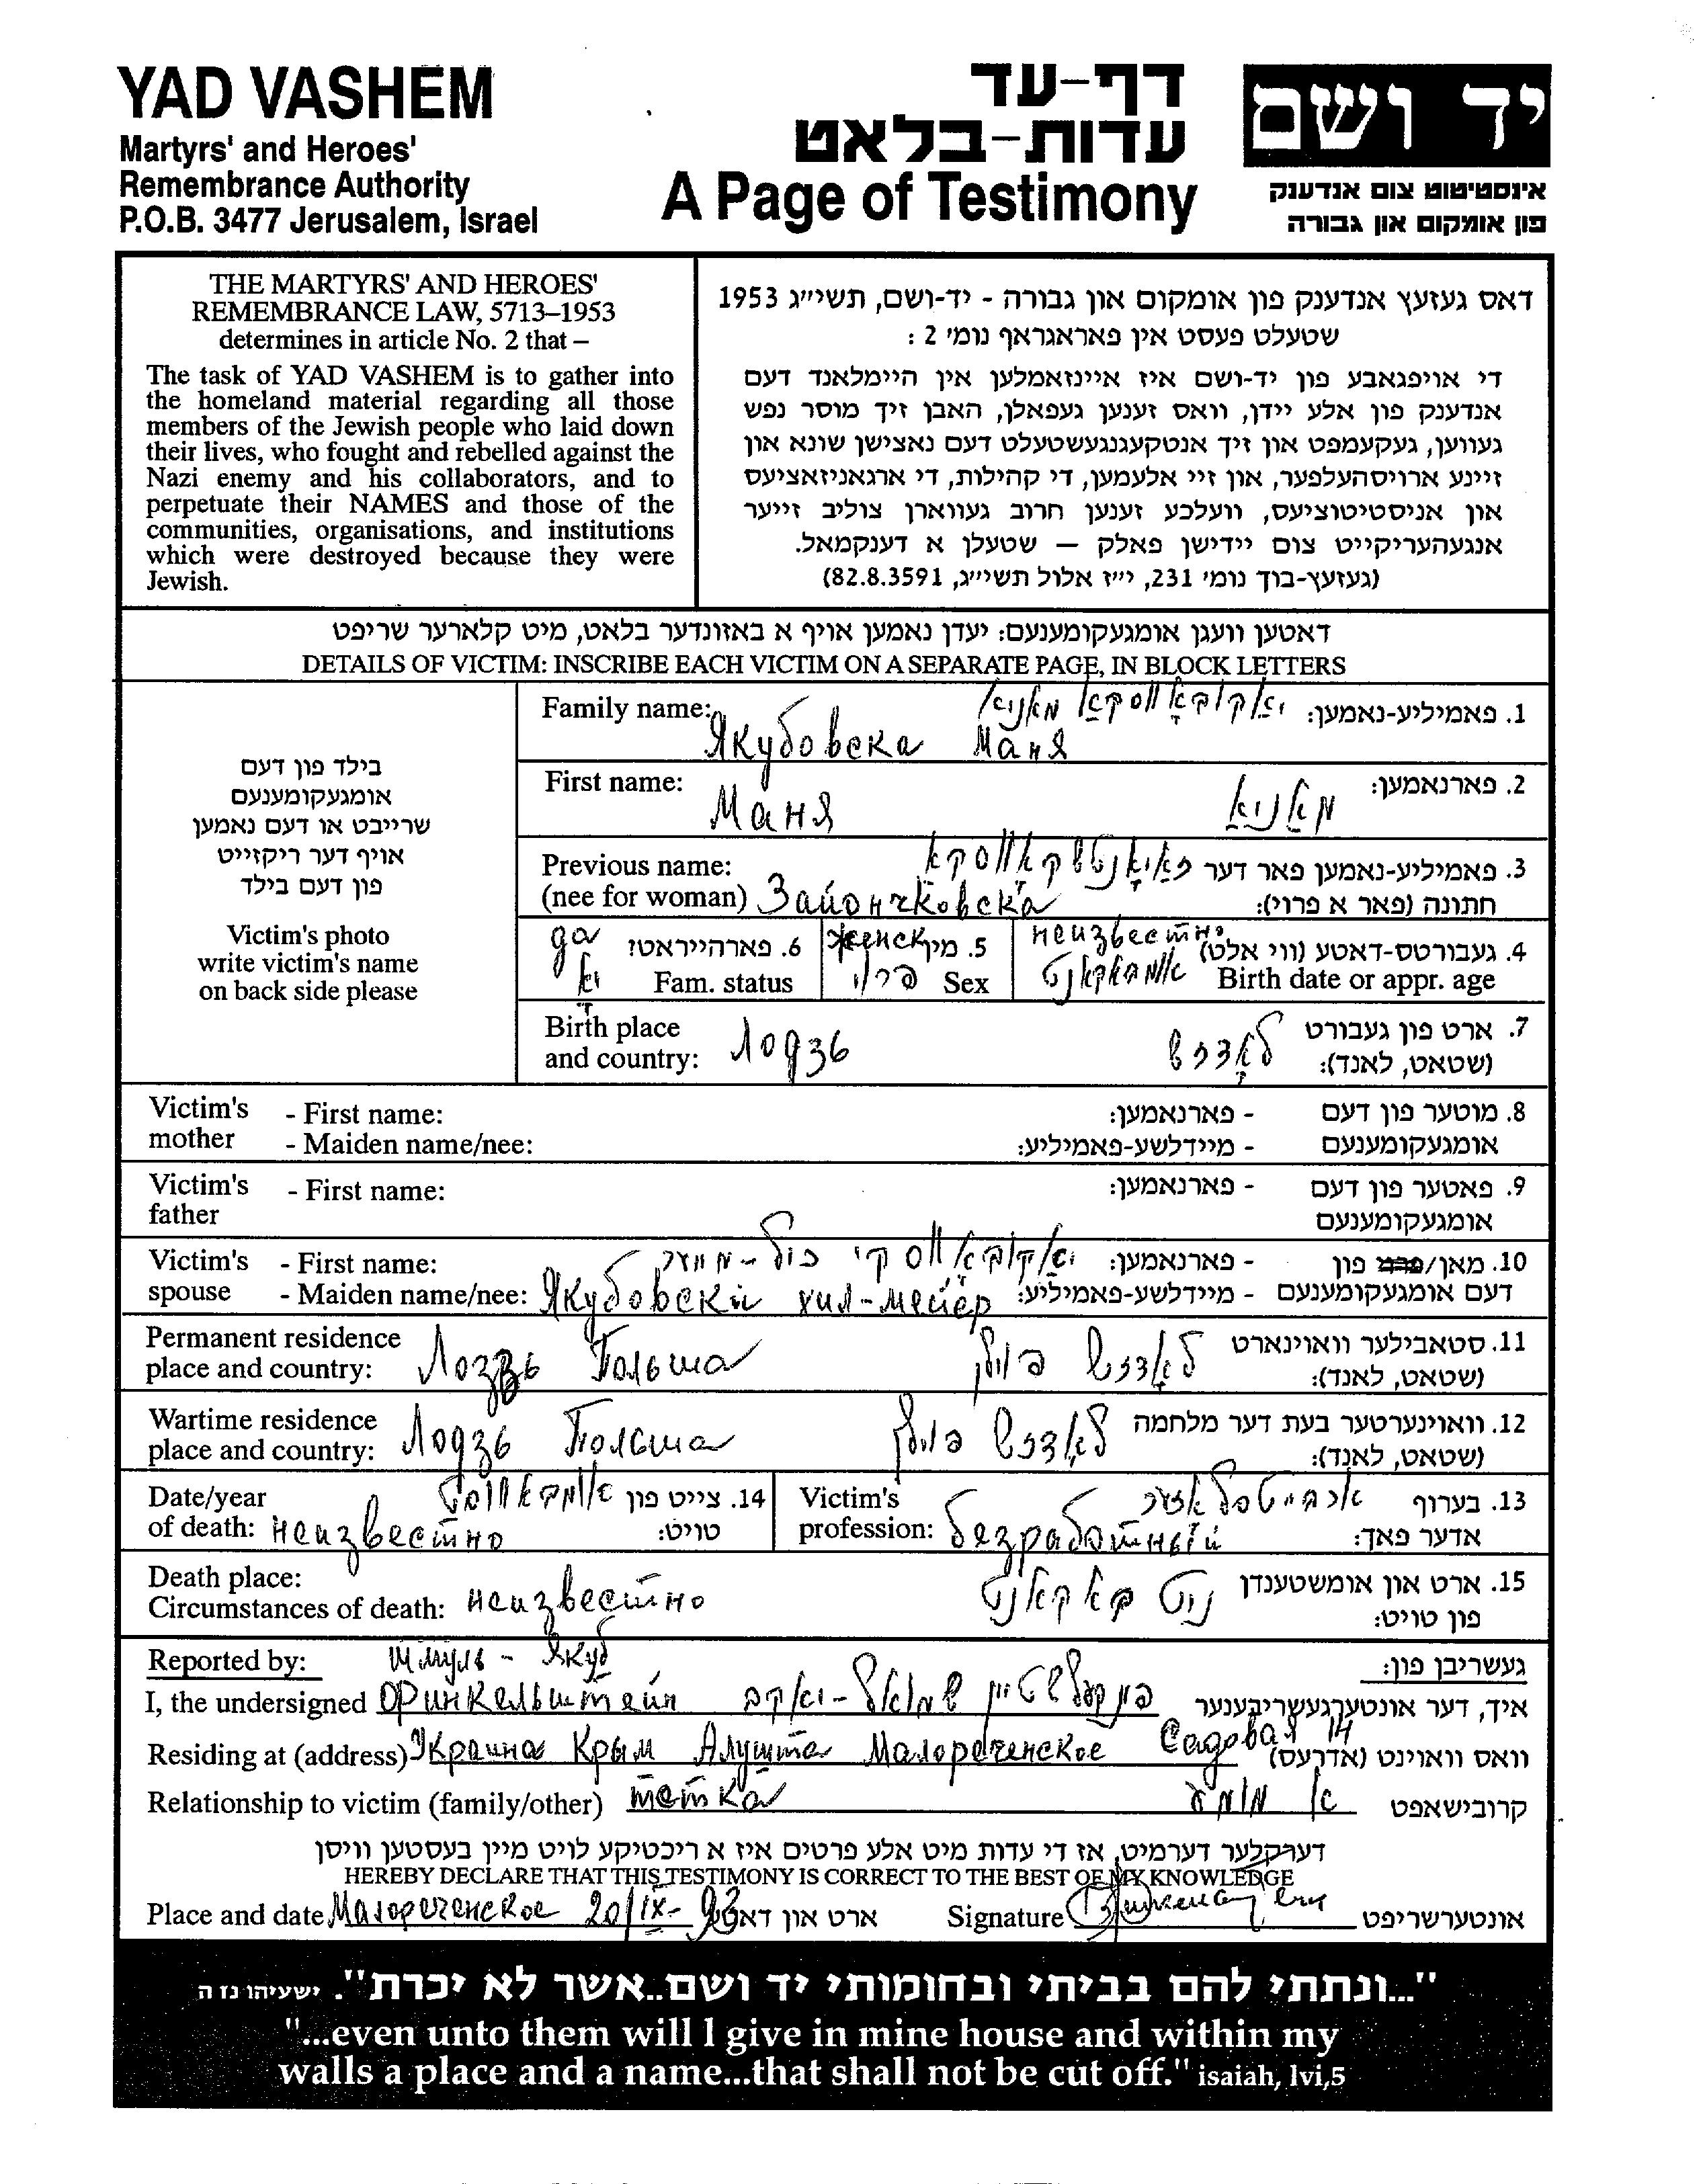 YAD VASHEM
Martyrs' and Heroes'
Remembrance Authority
P.O.B. 3477 Jerusalem, Israel
דף-עד
עדות-בלאט
A Page of Testimony
יד ושם
אינסטיטוט צום אנדענק
פון אומקום און גבורה
THE MARTYRS' AND HEROES'
REMEMBRANCE LAW, 5713–1953
determines in article No. 2 that –
The task of YAD VASHEM is to gather into
the homeland material regarding all those
members of the Jewish people who laid down
their lives, who fought and rebelled against the
Nazi enemy and his collaborators, and to
perpetuate their NAMES and those of the
communities, organisations, and institutions
which were destroyed because they were
Jewish.
דאס געזעץ אנדענק פון אומקום און גבורה - יד-ושם, תשי״ג 1953
שטעלט פעסט אין פאראגראף נומ׳ 2 :
די אויפגאבע פון יד-ושם איז איינזאמלען אין היימלאנד דעם
אנדענק פון אלע יידן, וואס זענען געפאלן, האבן זיך מוסר נפש
געווען, געקעמפט און זיך אנטקעגנגעשטעלט דעם נאצישן שונא און
זיינע ארויסהעלפער, און זיי אלעמען, די קהילות, די ארגאניזאציעס
און אניסטיטוציעס, וועלכע זענען חרוב געווארן צוליב זייער
אנגעהעריקייט צום יידישן פאלק — שטעלן א דענקמאל.
(געזעץ-בוך נומ׳ 231, י״ז אלול תשי״ג, 82.8.3591)
דאטען וועגן אומגעקומענעם: יעדן נאמען אויף א באזונדער בלאט, מיט קלארער שריפט
DETAILS OF VICTIM: INSCRIBE EACH VICTIM ON A SEPARATE PAGE, IN BLOCK LETTERS
בילד פון דעם
אומגעקומענעם
שרייבט או דעם נאמען
אויף דער ריקזייט
פון דעם בילד
Victim's photo
write victim's name
on back side please
Family name: 1. פאמיליע-נאמען: יאַקובאָווסקאַ מאַניאַ
Якубовска Маня
First name: Маня 2. פארנאמען: מאַניאַ
Previous name: 3. פאמיליע-נאמען פאר דער
(nee for woman) Зайончковска חתונה (פאר א פרוי):
да 6. פארהייראט? женск 5. מין неизвестно 4. געבורטס-דאטע (ווי אלט)
יאָ Fam. status פרוי Sex אומבאקאנט Birth date or appr. age
Birth place 7. ארט פון געבורט
and country: Лодзь לאָדזש (שטאט, לאנד):
Victim's - First name: - פארנאמען: 8. מוטער פון דעם
mother - Maiden name/nee: - מיידלשע-פאמיליע: אומגעקומענעם
Victim's - First name: - פארנאמען: 9. פאטער פון דעם
father אומגעקומענעם
Victim's - First name: - פארנאמען: יאַקובאָווסקי 10. מאן/פרוי פון
spouse - Maiden name/nee: Якубовский хил-мейер - מיידלשע-פאמיליע: דעם אומגעקומענעם
Permanent residence 11. סטאבילער וואוינארט
place and country: Лодзь Польша לאָדזש פוילן (שטאט, לאנד):
Wartime residence 12. וואוינערטער בעת דער מלחמה
place and country: Лодзь Польша לאָדזש פוילן (שטאט, לאנד):
Date/year 14. צייט פון אומבאוווסט Victim's 13. בערוף ארבייטסלאזער
of death: неизвестно טויט: profession: безработный אדער פאך:
Death place: 15. ארט און אומשטענדן
Circumstances of death: неизвестно ניט באקאנט פון טויט:
Reported by: Шмуль - Якуб געשריבן פון:
I, the undersigned Финкельштейн פינקעלשטיין שמואל-יאקב איך, דער אונטערגעשריבענער
Residing at (address) Украина Крым Алушта Малореченское Садовая 14 וואס וואוינט (אדרעס)
Relationship to victim (family/other) тётка א מומע קרובישאפט
דערקלער דערמיט, אז די עדות מיט אלע פרטים איז א ריכטיקע לויט מיין בעסטען וויסן
HEREBY DECLARE THAT THIS TESTIMONY IS CORRECT TO THE BEST OF MY KNOWLEDGE
Place and date Малореченское 20/IX-93 ארט און דאטע Signature אונטערשריפט
"...ונתתי להם בביתי ובחומותי יד ושם..אשר לא יכרת". ישעיהו נז ה
"...even unto them will I give in mine house and within my
walls a place and a name...that shall not be cut off." isaiah, lvi,5